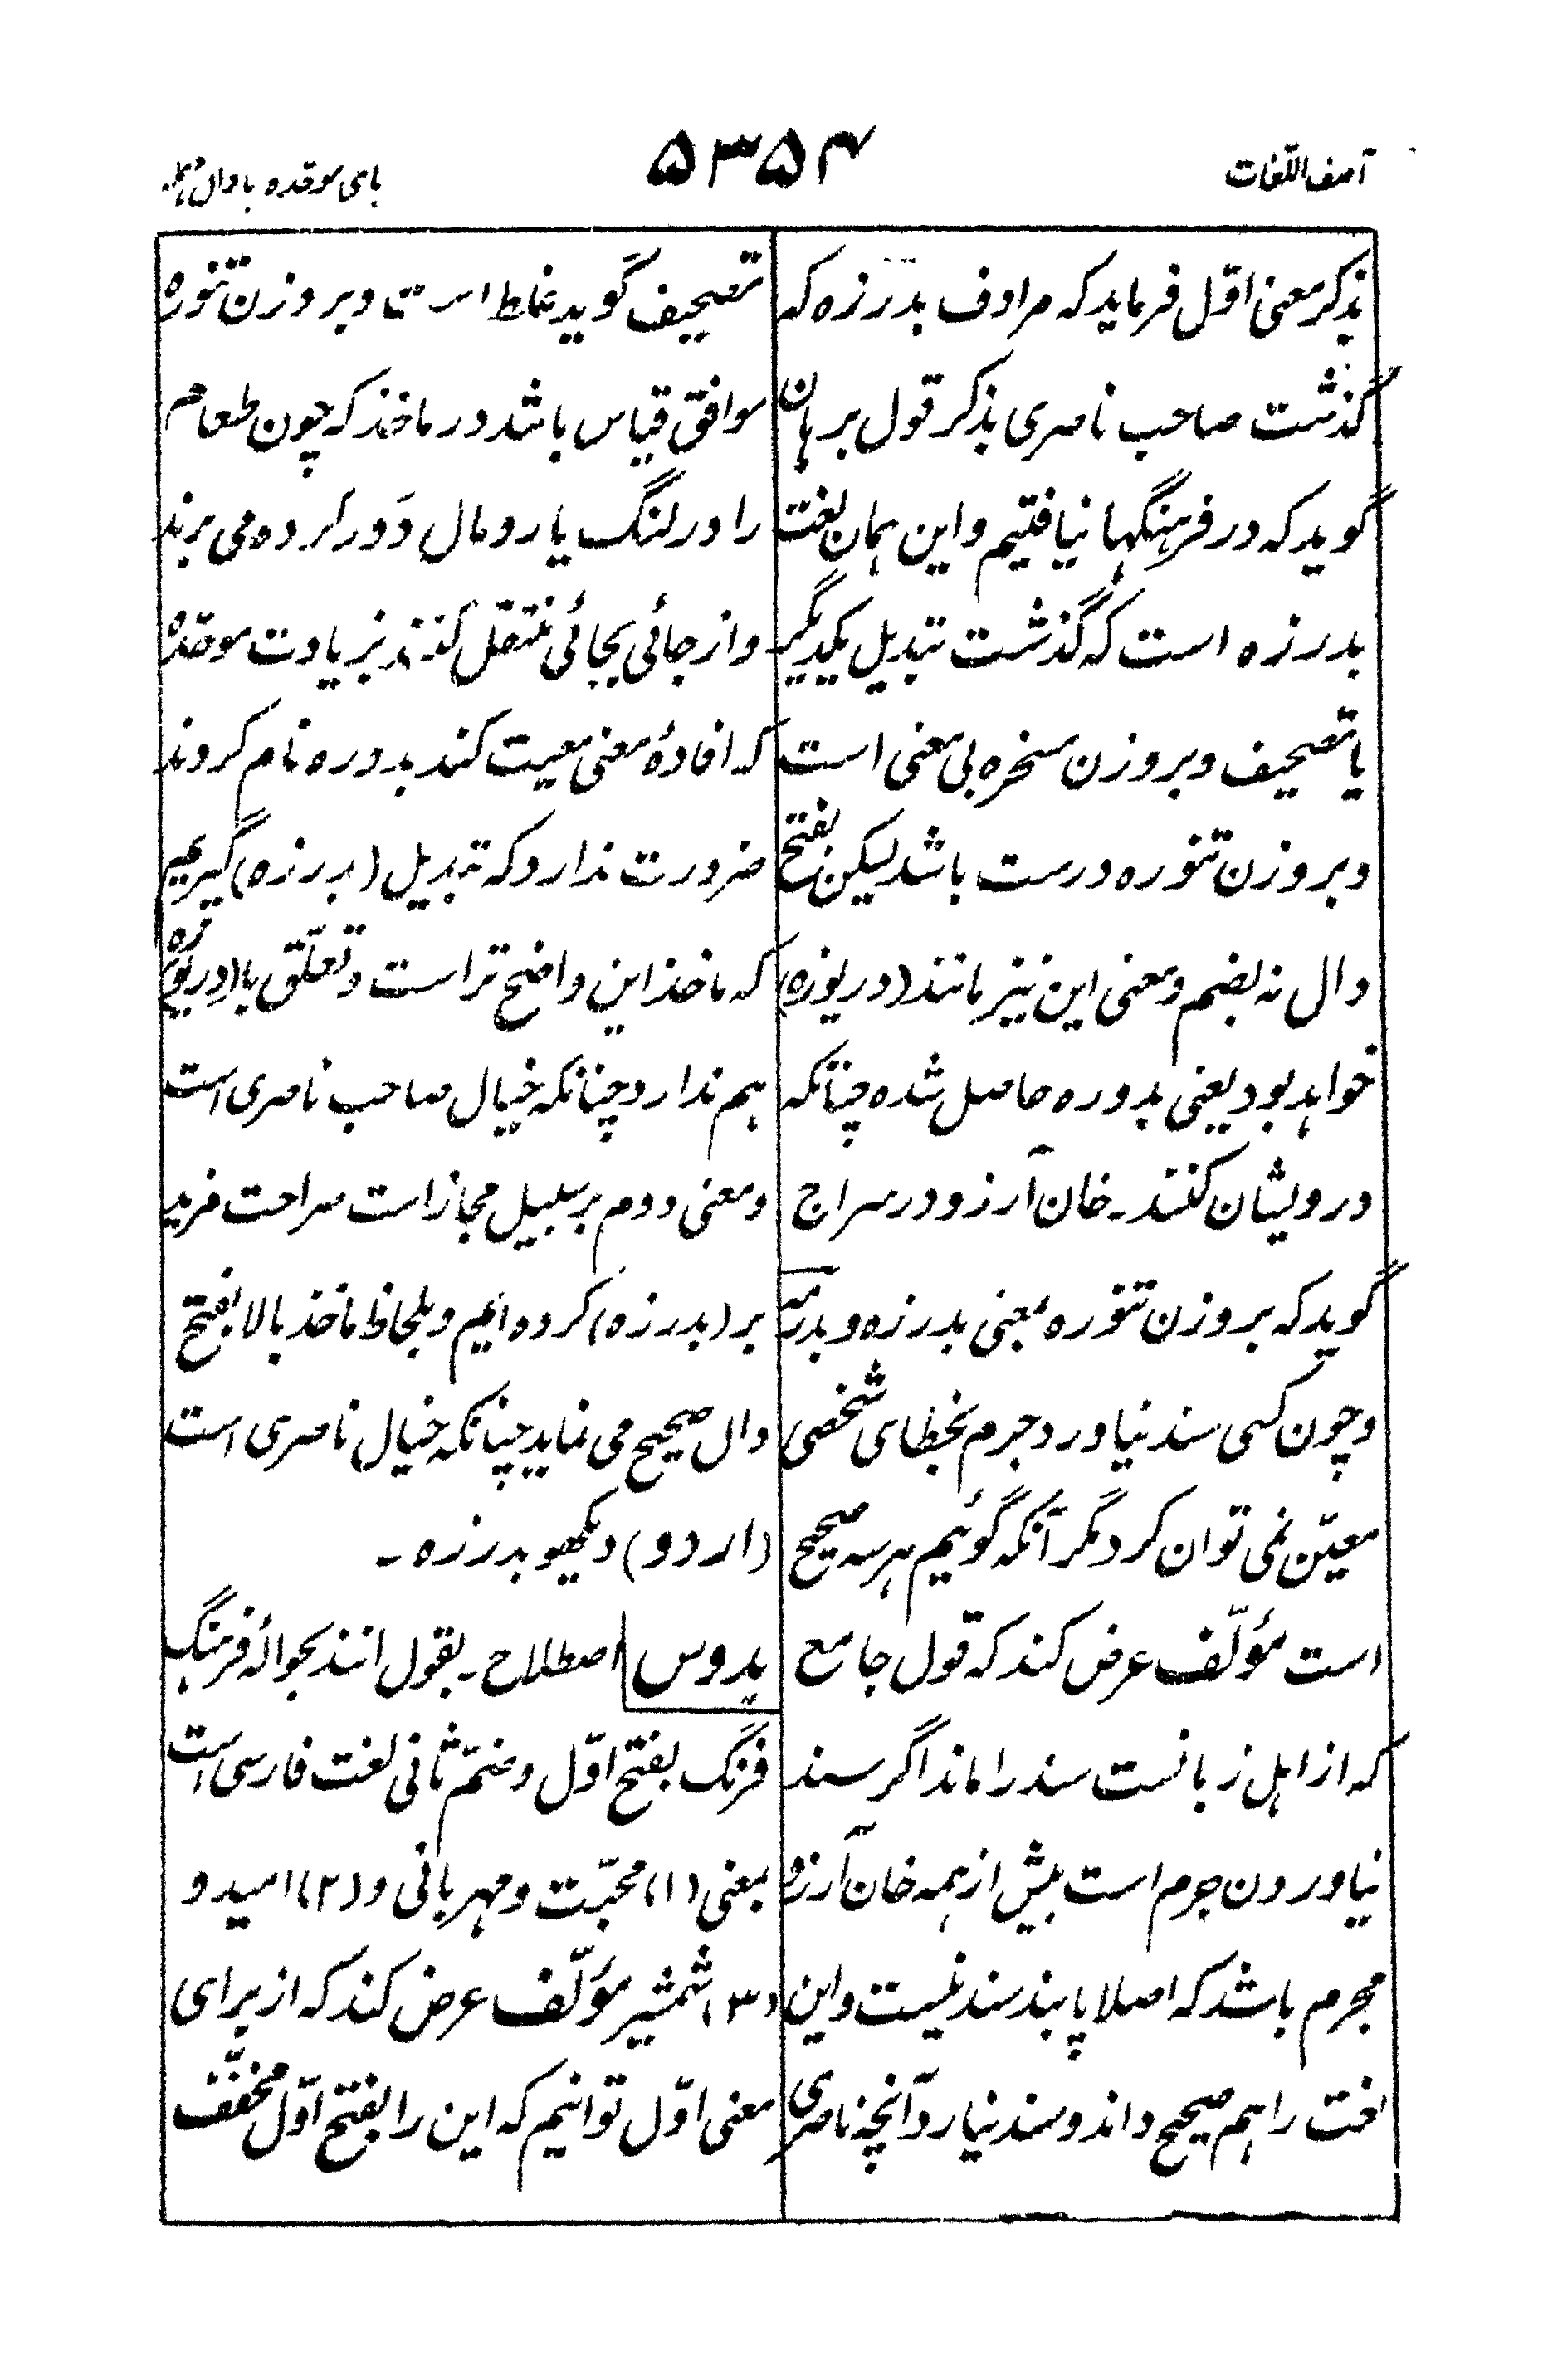 آصف اللغات
۵۳۵۴
بای موحّده با دال مہملہ
بذکر معنی اوّل فرماید کہ مرادف بدرزہ کہ
گذشت صاحب ناصری بذکر قول برہان
گوید کہ در فرہنگہا نیافتیم و این ہمان لغت
بدرزہ است کہ گذشت تبدیل یکدیگر
یا تصحیف و بر وزن سخرہ بی معنی است
و بر وزن تنورہ درست باشد لیکن بفتح
دال نہ بضم و معنی این نیز مانند (دریوزہ)
خواہد بود یعنی بدورہ حاصل شدہ چنانکہ
درویشان کنند۔ خان آرزو در سراج
گوید کہ بر وزن تنورہ بمعنی بدرزہ و
و چون کسی سند نیاورد جرم بخطای شخصی
معیّن نمی توان کرد مگر آنکہ گوئیم ہر سہ صحیح
است مؤلّف عرض کند کہ قول جامع
کہ از اہل زبانست سند را ماند اگر سند
نیاوردن جرم است بیش از ہمہ خان آرزو
مجرم باشد کہ اصلا پابند سند نیست و این
لغت را ہم صحیح داند و سند نیارد آنچہ ناصری
تصحیف گوید غلط است و بر وزن تنورہ
موافق قیاس باشد در ماخذ کہ چون طعام
را در لنگ یا رومال دَور کردہ می برند
و از جائی بجائی منتقل کنند بزیادت موحّدہ
کہ افادۂ معنی معیت کند بدورہ نام کردند
ضرورت ندارد کہ تبدیل (بدرزہ) گیریم
کہ ماخذ این واضح تر است و تعلّق با (دریوزہ)
ہم ندارد چنانکہ خیال صاحب ناصری است
و معنی دوم بر سبیل مجاز است صراحت مزید
بر (بدرزہ) کردہ ایم و بلحاظ ماخذ بالا بفتح
دال صحیح می نماید چنانکہ خیال ناصری است
(اردو) دیکھو بدرزہ ۔
بدوس اصطلاح۔ بقول انند بحوالۂ فرہنگ
فرنگ بفتح اوّل و ضمّ ثانی لغت فارسی است
بمعنی (۱) محبّت و مہربانی و (۲) امید و
(۳) شمشیر مؤلّف عرض کند کہ از برای
معنی اوّل توانیم کہ این را بفتح اوّل مخفّف